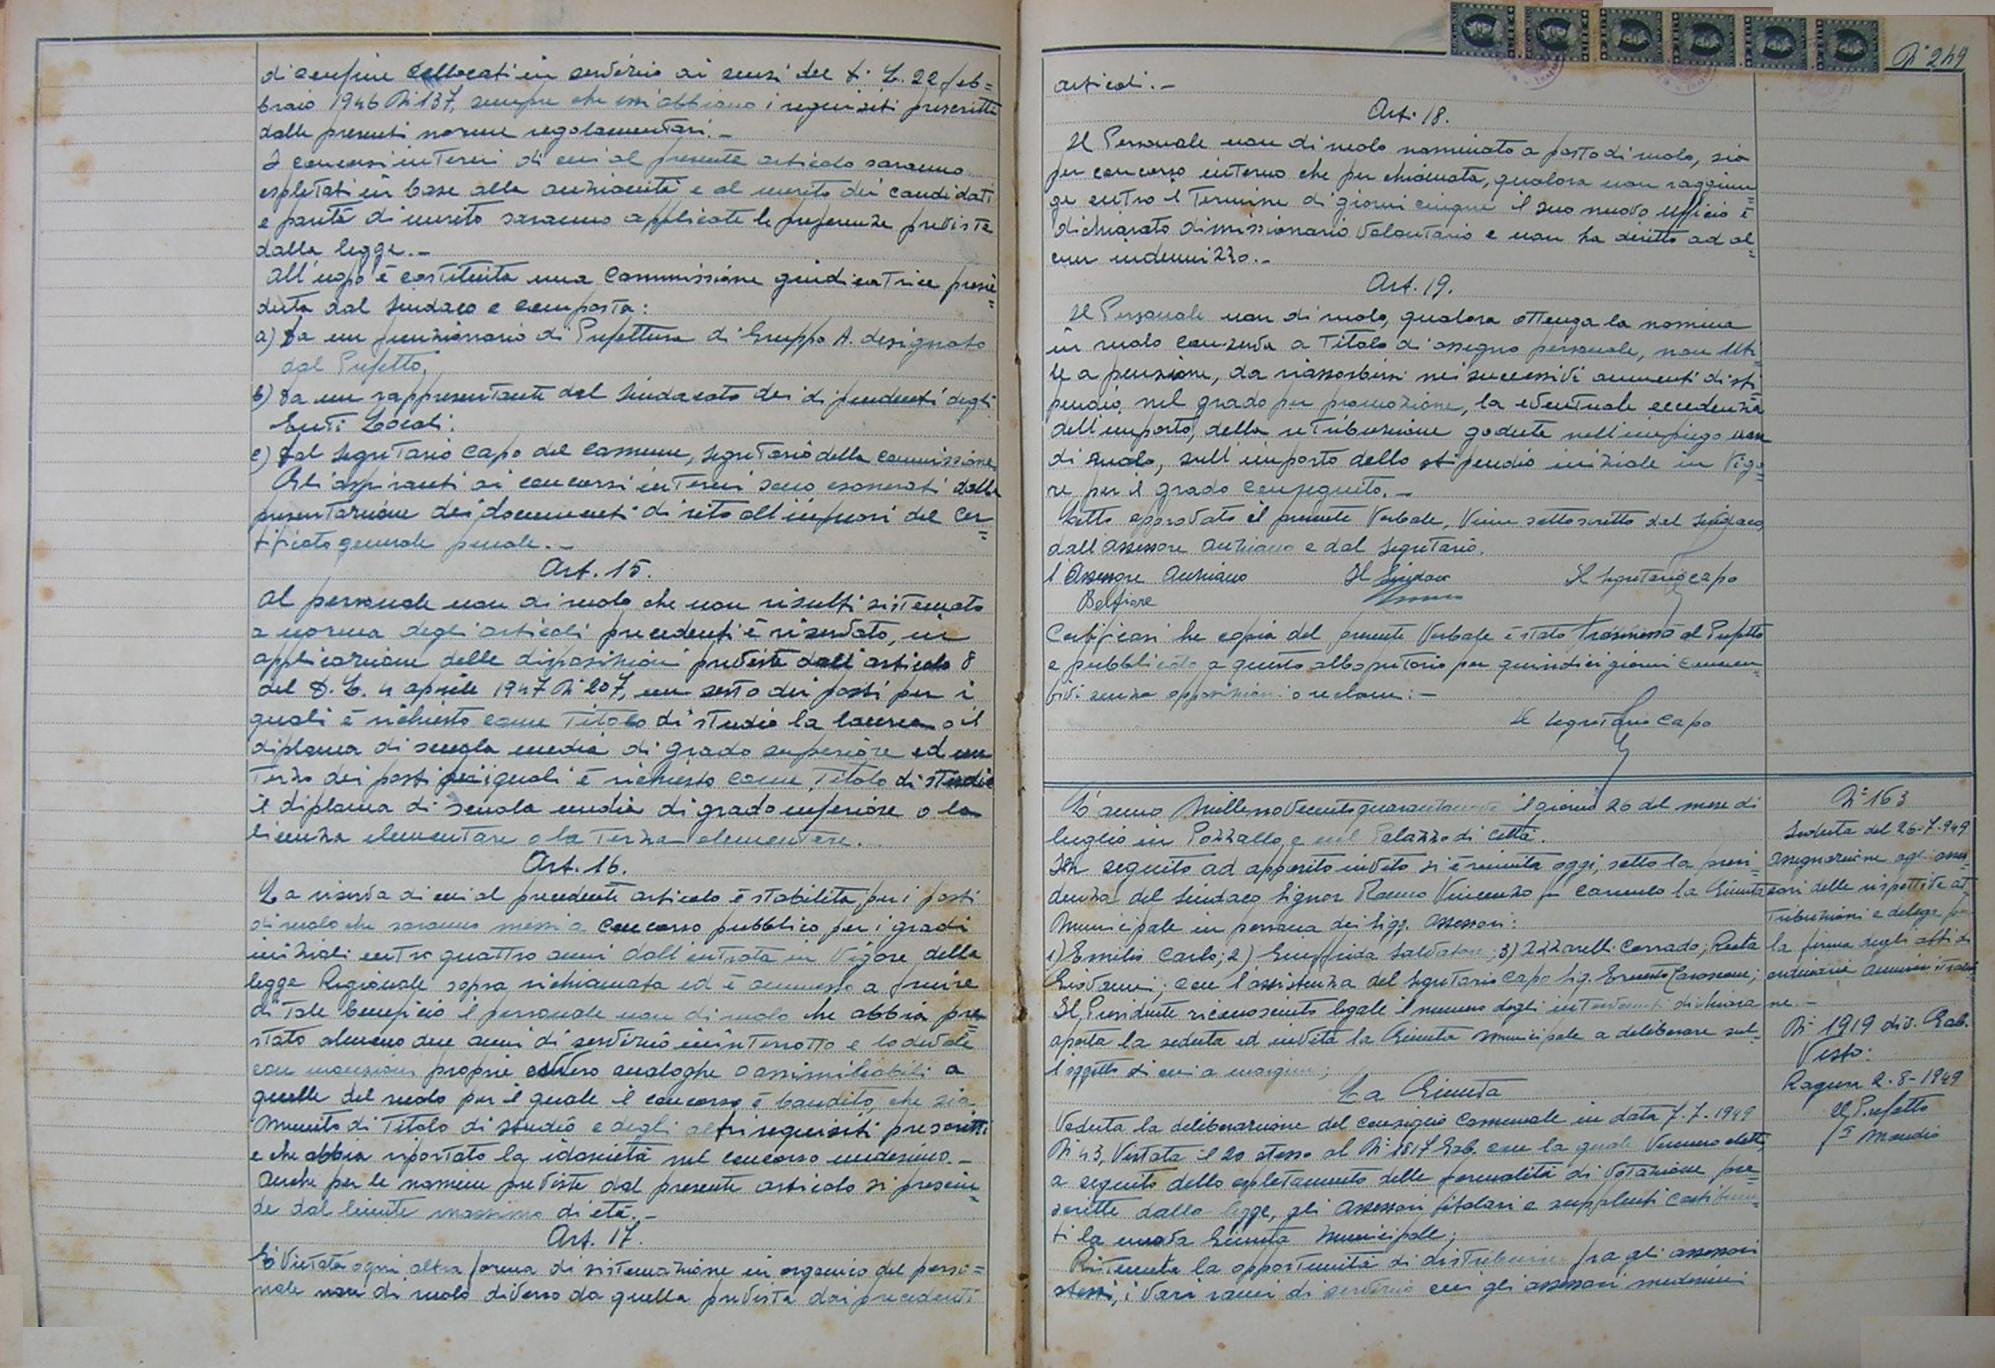 di confine collocati in servizio ai sensi del D. L. 22 feb=
braio 1946 N° 137, sempre che essi abbiano i requisiti prescritti
dalle presenti norme regolamentari. -
I concorsi interni di cui al presente articolo saranno
espletati in base alla anzianità e al merito dei candidati
e parità di merito saranno applicate le preferenze previste
dalla legge. -
All'uopo è costituita una Commissione giudicatrice presie=
duta dal Sindaco e composta:
a) Da un funzionario di Prefettura di Gruppo A. designato
dal Prefetto,
b) Da un rappresentante del Sindacato dei dipendenti degli
Enti Locali.
c) Dal Segretario Capo del Comune, Segretario della commissione.
Gli aspiranti ai concorsi interni sono esonerati dalla
presentazione dei documenti di rito all'infuori del cer=
tificato generale penale. -
Art. 15.
Al personale non di ruolo che non risulti sistemato
a norma degli articoli precedenti è riservato, in
applicazione delle disposizioni previste dall'articolo 8
del D. L. 4 aprile 1947 N° 207, un sesto dei posti per i
quali è richiesto come Titolo di studio la laurea o il
diploma di scuola media di grado superiore ed un
Terzo dei posti per i quali è richiesto come Titolo di studio
il diploma di scuola media di grado inferiore o la
licenza elementare o la Terza elementare.
Art. 16.
La riserva di cui al precedente articolo è stabilita, per i posti
di ruolo che saranno messi a concorso pubblico per i gradi
iniziali entro quattro anni dall'entrata in Vigore della
legge Regionale sopra richiamata ed è ammesso a fruire
di tale beneficio il personale non di ruolo che abbia pre=
stato almeno due anni di servizio ininterrotto e lodevole
con mansioni proprie ovvero analoghe o assimilabili a
quelle del ruolo per il quale il concorso è bandito, che sia
munito di Titolo di studio e degli altri requisiti prescritti
e che abbia riportato la idoneità nel concorso medesimo. -
Anche per le nomine previste dal presente articolo si prescin=
de dal limite massimo di età. -
Art. 17.
È Vietata ogni altra forma di sistemazione in organico del perso=
nale non di ruolo diversa da quella prevista dai precedenti
N° 249
articoli. -
Art. 18.
Il Personale non di ruolo nominato a posto di ruolo, sia
per concorso interno che per chiamata, qualora non raggiun=
ge entro il Termine di giorni cinque il suo nuovo ufficio è
dichiarato dimissionario Volontario e non ha diritto ad al=
cun indennizzo. -
Art. 19.
Il Personale non di ruolo, qualora ottenga la nomina
in ruolo conserva a Titolo d'assegno personale, non uti=
le a pensione, da riassorbirsi nei successivi aumenti di sti=
pendio, nel grado per promozione, la eventuale eccedenza
dell'importo, della retribuzione goduta nell'impiego non
di ruolo, sull'importo dello stipendio iniziale in Vigo=
re per il grado conseguito. -
Letto approvato il presente Verbale, Viene sottoscritto dal Sindaco,
dall'Assessore Anziano e dal Segretario.
l'Assessore Anziano Il Sindaco Il Segretario Capo
Belfiore
Certificasi che copia del presente Verbale è stato Trasmesso al Prefetto
e pubblicato a questo albo pretorio per quindici giorni consecu=
tivi senza opposizioni o reclami: -
Il Segretario Capo
L'anno Millenovecentoquarantanove il giorno 26 del mese di
luglio in Pozzallo, e nel Palazzo di Città.
In seguito ad apposito invito si è riunita oggi, sotto la presi=
denza del Sindaco Signor Vincenzo fu Carmelo la Giunta
Municipale in persona dei Sigg. Assessori:
1) Emilio Carlo; 2) Giuffrida Salvatore; 3) Azzarelli Corrado;
Giovanni; con l'assistenza del Segretario Capo Sig. Ernesto
Il Presidente riconosciuto legale il numero degli intervenuti dichiara
aperta la seduta ed invita la Giunta municipale a deliberare sul=
l'oggetto di cui a margine;
La Giunta
Veduta la deliberazione del consiglio Comunale in data 7.7.1949
N° 43, Vistata il 20 stesso al N° 1817 Gab. con la quale Vennero eletti,
a seguito dello espletamento delle formalità di Votazione pre=
scritte dalla legge, gli Assessori titolari e supplenti costituen=
ti la nuova Giunta Municipale;
Ritenuta la opportunità di distribuire fra gli assessori
stessi, i Vari rami di servizio cui gli assessori medesimi
N° 163
Seduta del 26-7-949
Assegnazione agli asses=
sori delle rispettive at=
tribuzioni e delega per
la firma degli atti di
ordinaria amministrazio
ne. -
N° 1919 div. Gab.
Visto:
Ragusa 2-8-1949
Il Prefetto